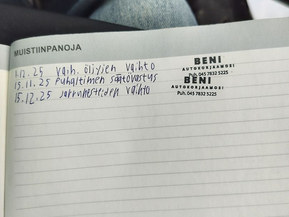 MUISTIINPANOJA
.12.25 vaih. öljyjen vaihto
15.11.25 Puhaltimen säätövastus
15.12.25 Jakkunesteiden vaihto
BENI
AUTOKORJAAMOSI
Puh. 045 7832 5225
BENI
AUTOKORJAAMOSI
Puh. 045 7832 5225